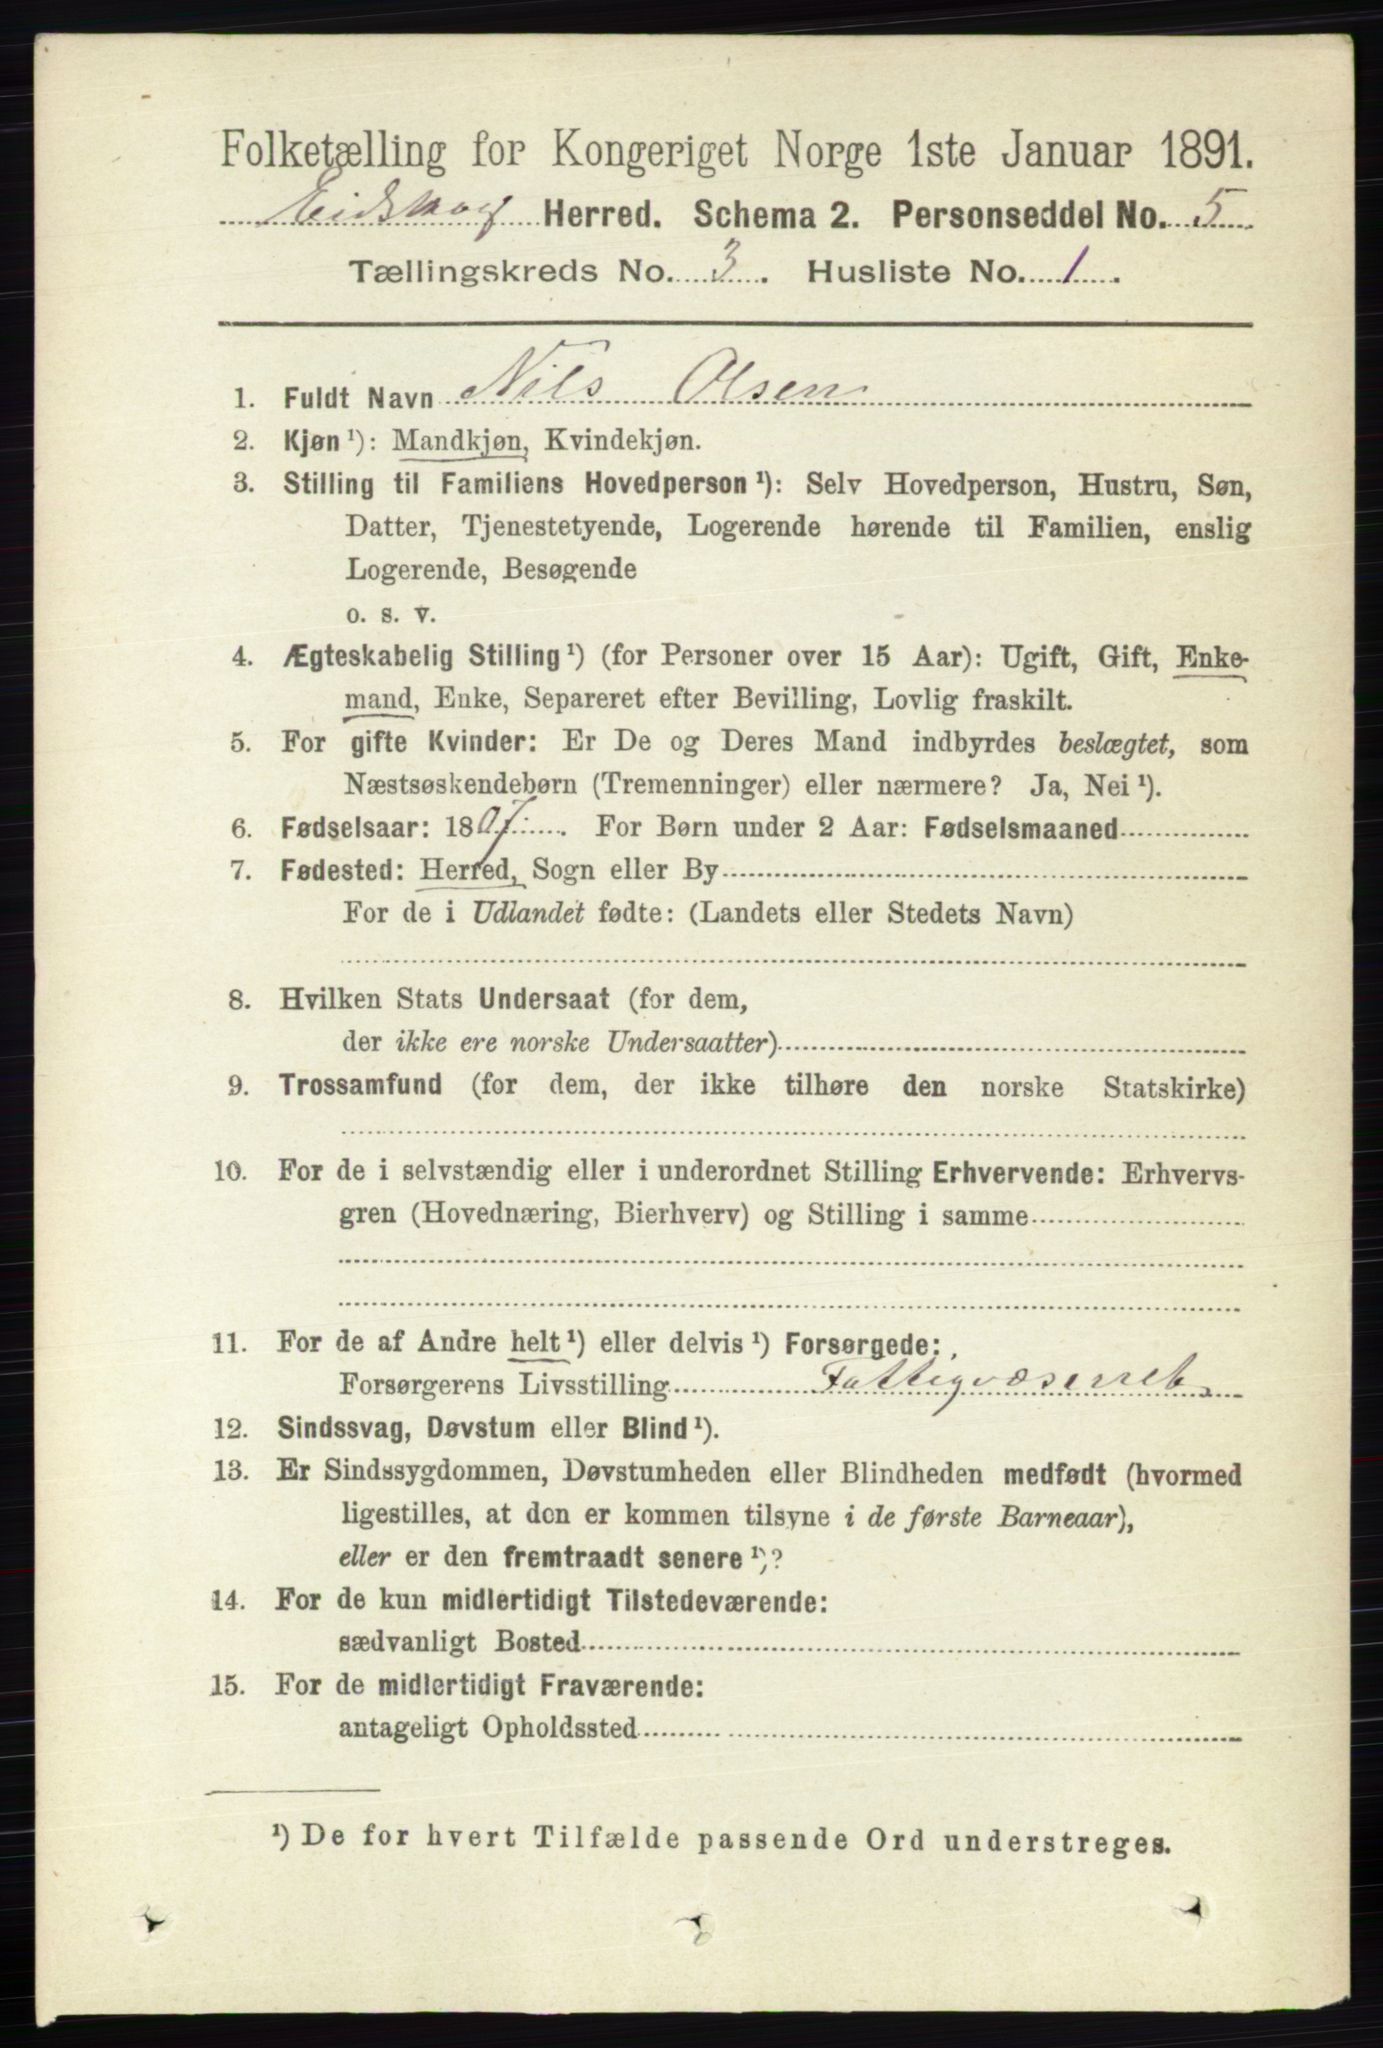 Folketælling for Kongeriget Norge 1ste Januar 1891.
Eidskog Herred. Schema 2. Personseddel No. 5
Tællingskreds No. 3. Husliste No. 1.
1. Fuldt Navn Nils Olsen
2. Kjøn ¹): Mandkjøn, Kvindekjøn.
3. Stilling til Familiens Hovedperson ¹): Selv Hovedperson, Hustru, Søn,
Datter, Tjenestetyende, Logerende hørende til Familien, enslig
Logerende, Besøgende
o. s. v.
4. Ægteskabelig Stilling ¹) (for Personer over 15 Aar): Ugift, Gift, Enke-
mand, Enke, Separeret efter Bevilling, Lovlig fraskilt.
5. For gifte Kvinder: Er De og Deres Mand indbyrdes beslægtet, som
Næstsøskendebørn (Tremenninger) eller nærmere? Ja, Nei ¹).
6. Fødselsaar: 1807. For Børn under 2 Aar: Fødselsmaaned
7. Fødested: Herred, Sogn eller By
For de i Udlandet fødte: (Landets eller Stedets Navn)
8. Hvilken Stats Undersaat (for dem,
der ikke ere norske Undersaatter)
9. Trossamfund (for dem, der ikke tilhøre den norske Statskirke)
10. For de i selvstændig eller i underordnet Stilling Erhvervende: Erhvervs-
gren (Hovednæring, Bierhverv) og Stilling i samme
11. For de af Andre helt ¹) eller delvis ¹) Forsørgede:
Forsørgerens Livsstilling Fattigvæsenet
12. Sindssvag, Døvstum eller Blind ¹).
13. Er Sindssygdommen, Døvstumheden eller Blindheden medfødt (hvormed
ligestilles, at den er kommen tilsyne i de første Barneaar),
eller er den fremtraadt senere ¹)?
14. For de kun midlertidigt Tilstedeværende:
sædvanligt Bosted
15. For de midlertidigt Fraværende:
antageligt Opholdssted
¹) De for hvert Tilfælde passende Ord understreges.